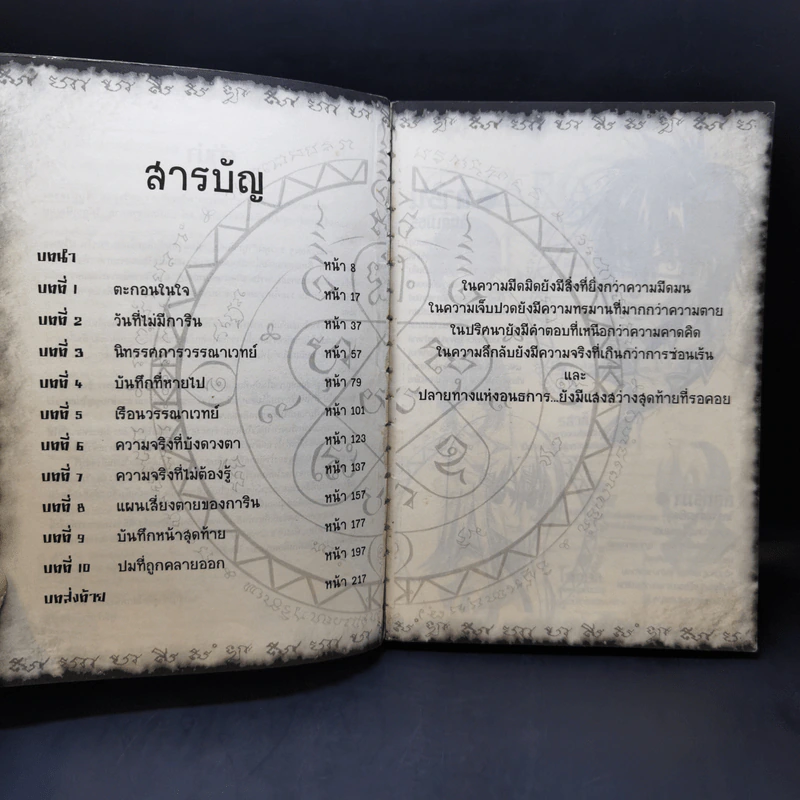 สารบัญ
บทนำ หน้า 8
บทที่ 1 ตะกอนในใจ หน้า 17
บทที่ 2 วันที่ไม่มีการิน หน้า 37
บทที่ 3 นิทรรศการวรรณาเวทย์ หน้า 57
บทที่ 4 บันทึกที่หายไป หน้า 79
บทที่ 5 เรือนวรรณาเวทย์ หน้า 101
บทที่ 6 ความจริงที่บังดวงตา หน้า 123
บทที่ 7 ความจริงที่ไม่ต้องรู้ หน้า 137
บทที่ 8 แผนเสี่ยงตายของการิน หน้า 157
บทที่ 9 บันทึกหน้าสุดท้าย หน้า 177
บทที่ 10 ปมที่ถูกคลายออก หน้า 197
บทส่งท้าย หน้า 217
ในความมืดมิดยังมีสิ่งที่ยิ่งกว่าความมืดมน
ในความเจ็บปวดยังมีความทรมานที่มากกว่าความตาย
ในปริศนายังมีคำตอบที่เหนือกว่าความคาดคิด
ในความลึกลับยังมีความจริงที่เกินกว่าการซ่อนเร้น
และ
ปลายทางแห่งอนธการ...ยังมีแสงสว่างสุดท้ายที่รอคอย